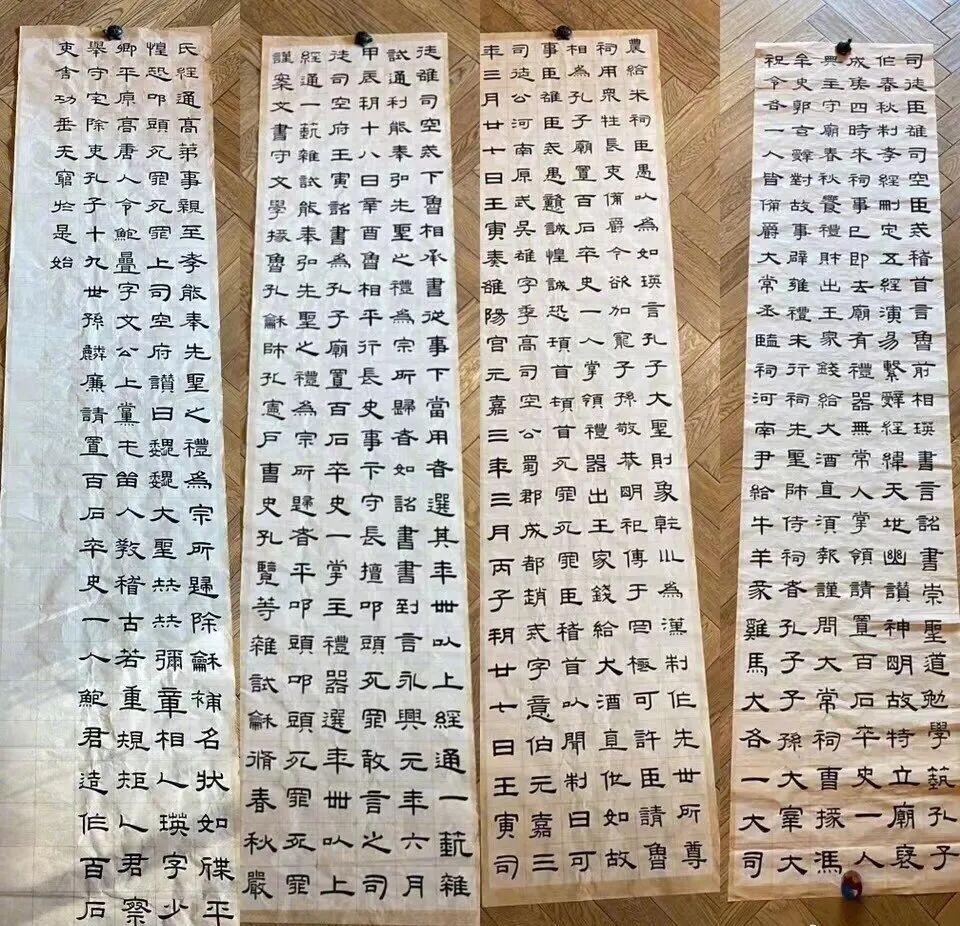 司徒臣雄司空臣戒稽首言魯前相瑛書言詔書崇聖道勉學藝孔子
作春秋制孝經刪定五經演易繫辭經緯天地幽讚神明故特立廟褒
成侯四時來祠事已即去廟有禮器無常人掌領請置百石卒史一人
典主守廟春秋饗禮財出王家錢給大酒直須報謹問大常祠曹掾馮
牟史郭玄辭對故事辟雍禮未行祠先聖師侍祠者孔子子孫大宰大
祝令各一人皆備爵大常丞監祠河南尹給牛羊豕雞馬犬各一大司
農給米祠臣愚以為如瑛言孔子大聖則象乾川為漢制作先世所尊
祠用眾牲長吏備爵今欲加寵子孫敬恭明祀傳于罔極可許臣請魯
相為孔子廟置百石卒史一人掌領禮器出王家錢給犬酒直他如故
事臣雄臣戒愚戇誠惶誠恐頓首頓首死罪死罪臣稽首以聞制曰可
司徒公河南原武吳雄字季高司空公蜀郡成都趙戒字意伯元嘉三
年三月廿七日壬寅奏雒陽宮元嘉三年三月丙子朔廿七日壬寅司
徒雄司空戒下魯相承書從事下當用者選其年卌以上經通一藝雜
試通利能奉弘先聖之禮為宗所歸者如詔書書到言永興元年六月
甲辰朔十八日辛酉魯相平行長史事卞守長擅叩頭死罪敢言之司
徒司空府壬寅詔書為孔子廟置百石卒史一掌主禮器選年卌以上
經通一藝雜試能奉弘先聖之禮為宗所歸者平叩頭叩頭死罪死罪
謹案文書守文學掾魯孔龢師孔憲戶曹史孔覽等雜試龢脩春秋嚴
氏經通高第事親至孝能奉先聖之禮為宗所歸除龢補名狀如牒平
惶恐叩頭死罪死罪上司空府讚曰巍巍大聖赫赫彌章相乙瑛字少
卿平原高唐人令鮑疊字文公上黨屯留人教稽古若重規矩乙君察
舉守宅除吏孔子十九世孫麟廉請置百石卒史一人鮑君造作百石
吏舍功垂无窮於是始